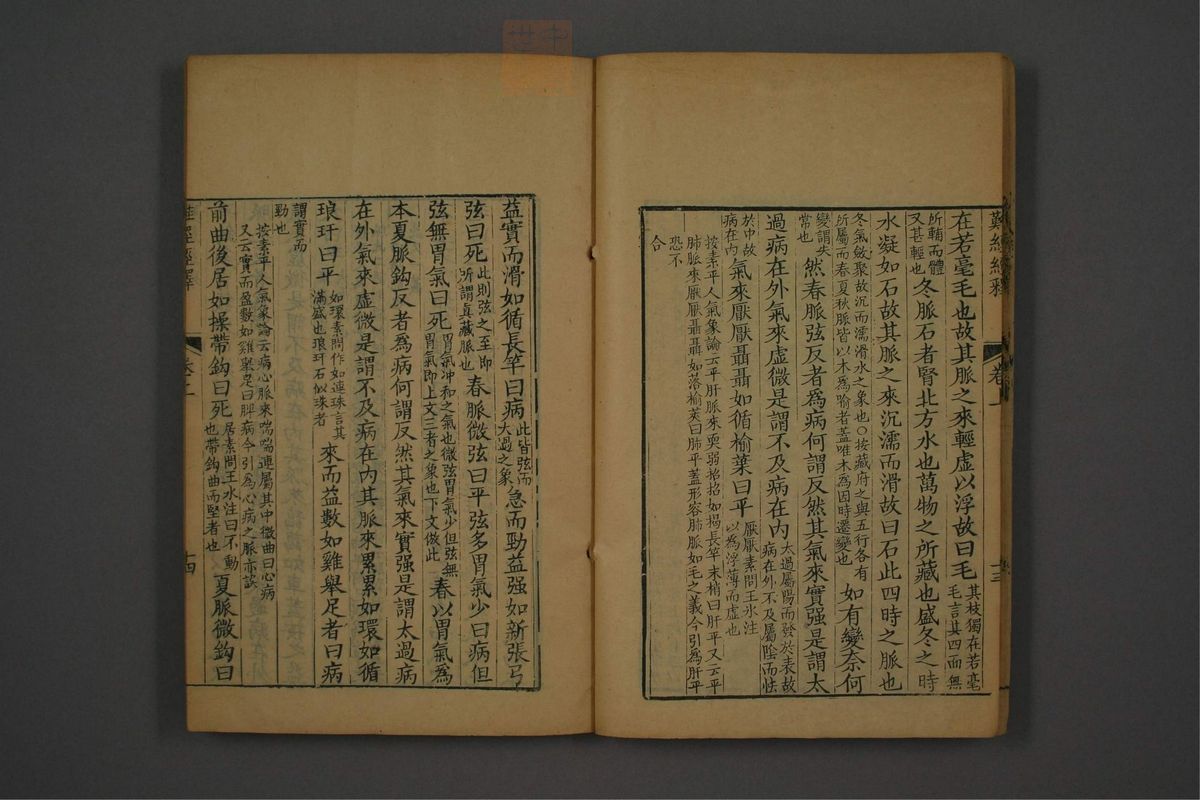 難經經釋
卷上
十三
在若毫毛也故其脈之來輕虛以浮故曰毛其枝獨在若毫毛言其四面無
所輔而體又甚輕也冬脈石者腎北方水也萬物之所藏也盛冬之時
水凝如石故其脈之來沉濡而滑故曰石此四時之脈也
冬氣斂聚故沉而濡滑水之象也○按藏府之與五行各有所屬而春夏秋脈皆以木為喻者蓋唯木為因時遷變也如有變奈何
變謂失常也然春脈弦反者為病何謂反然其氣來實强是謂太
過病在外氣來虛微是謂不及病在內太過屬陽而發於表故病在外不及屬陰而怯
於中故病在內氣來厭厭聶聶如循榆葉曰平厭厭素問王氷注以為浮薄而虛也
按素平人氣象論云平肝脈來耎弱招招如揭長竿末梢曰肝平又云平
肺脈來厭厭聶聶如落榆莢曰肺平蓋形容肺脈如毛之義今引為肝平
恐不合
益實而滑如循長竿曰病此皆弦而太過之象急而勁益强如新張弓
弦曰死此則弦之至即所謂真藏脈也春脈微弦曰平弦多胃氣少曰病但
弦無胃氣曰死胃氣冲和之氣也微弦胃氣少但弦無胃氣即上文三者之象也下文倣此春以胃氣為
本夏脈鈎反者為病何謂反然其氣來實强是謂太過病
在外氣來虛微是謂不及病在內其脈來累累如環如循
琅玕曰平如環素問作如連珠言其滿盛也琅玕石似珠者來而益數如雞舉足者曰病
謂實而勁也
按素平人氣象論云病心脈來喘喘連屬其中微曲曰心病
又云實而盈數如雞舉足曰脾病今引為心病之脈亦誤
前曲後居如操帶鈎曰死居素問王氷注曰不動也帶鈎曲而堅者也夏脈微鈎曰
十四